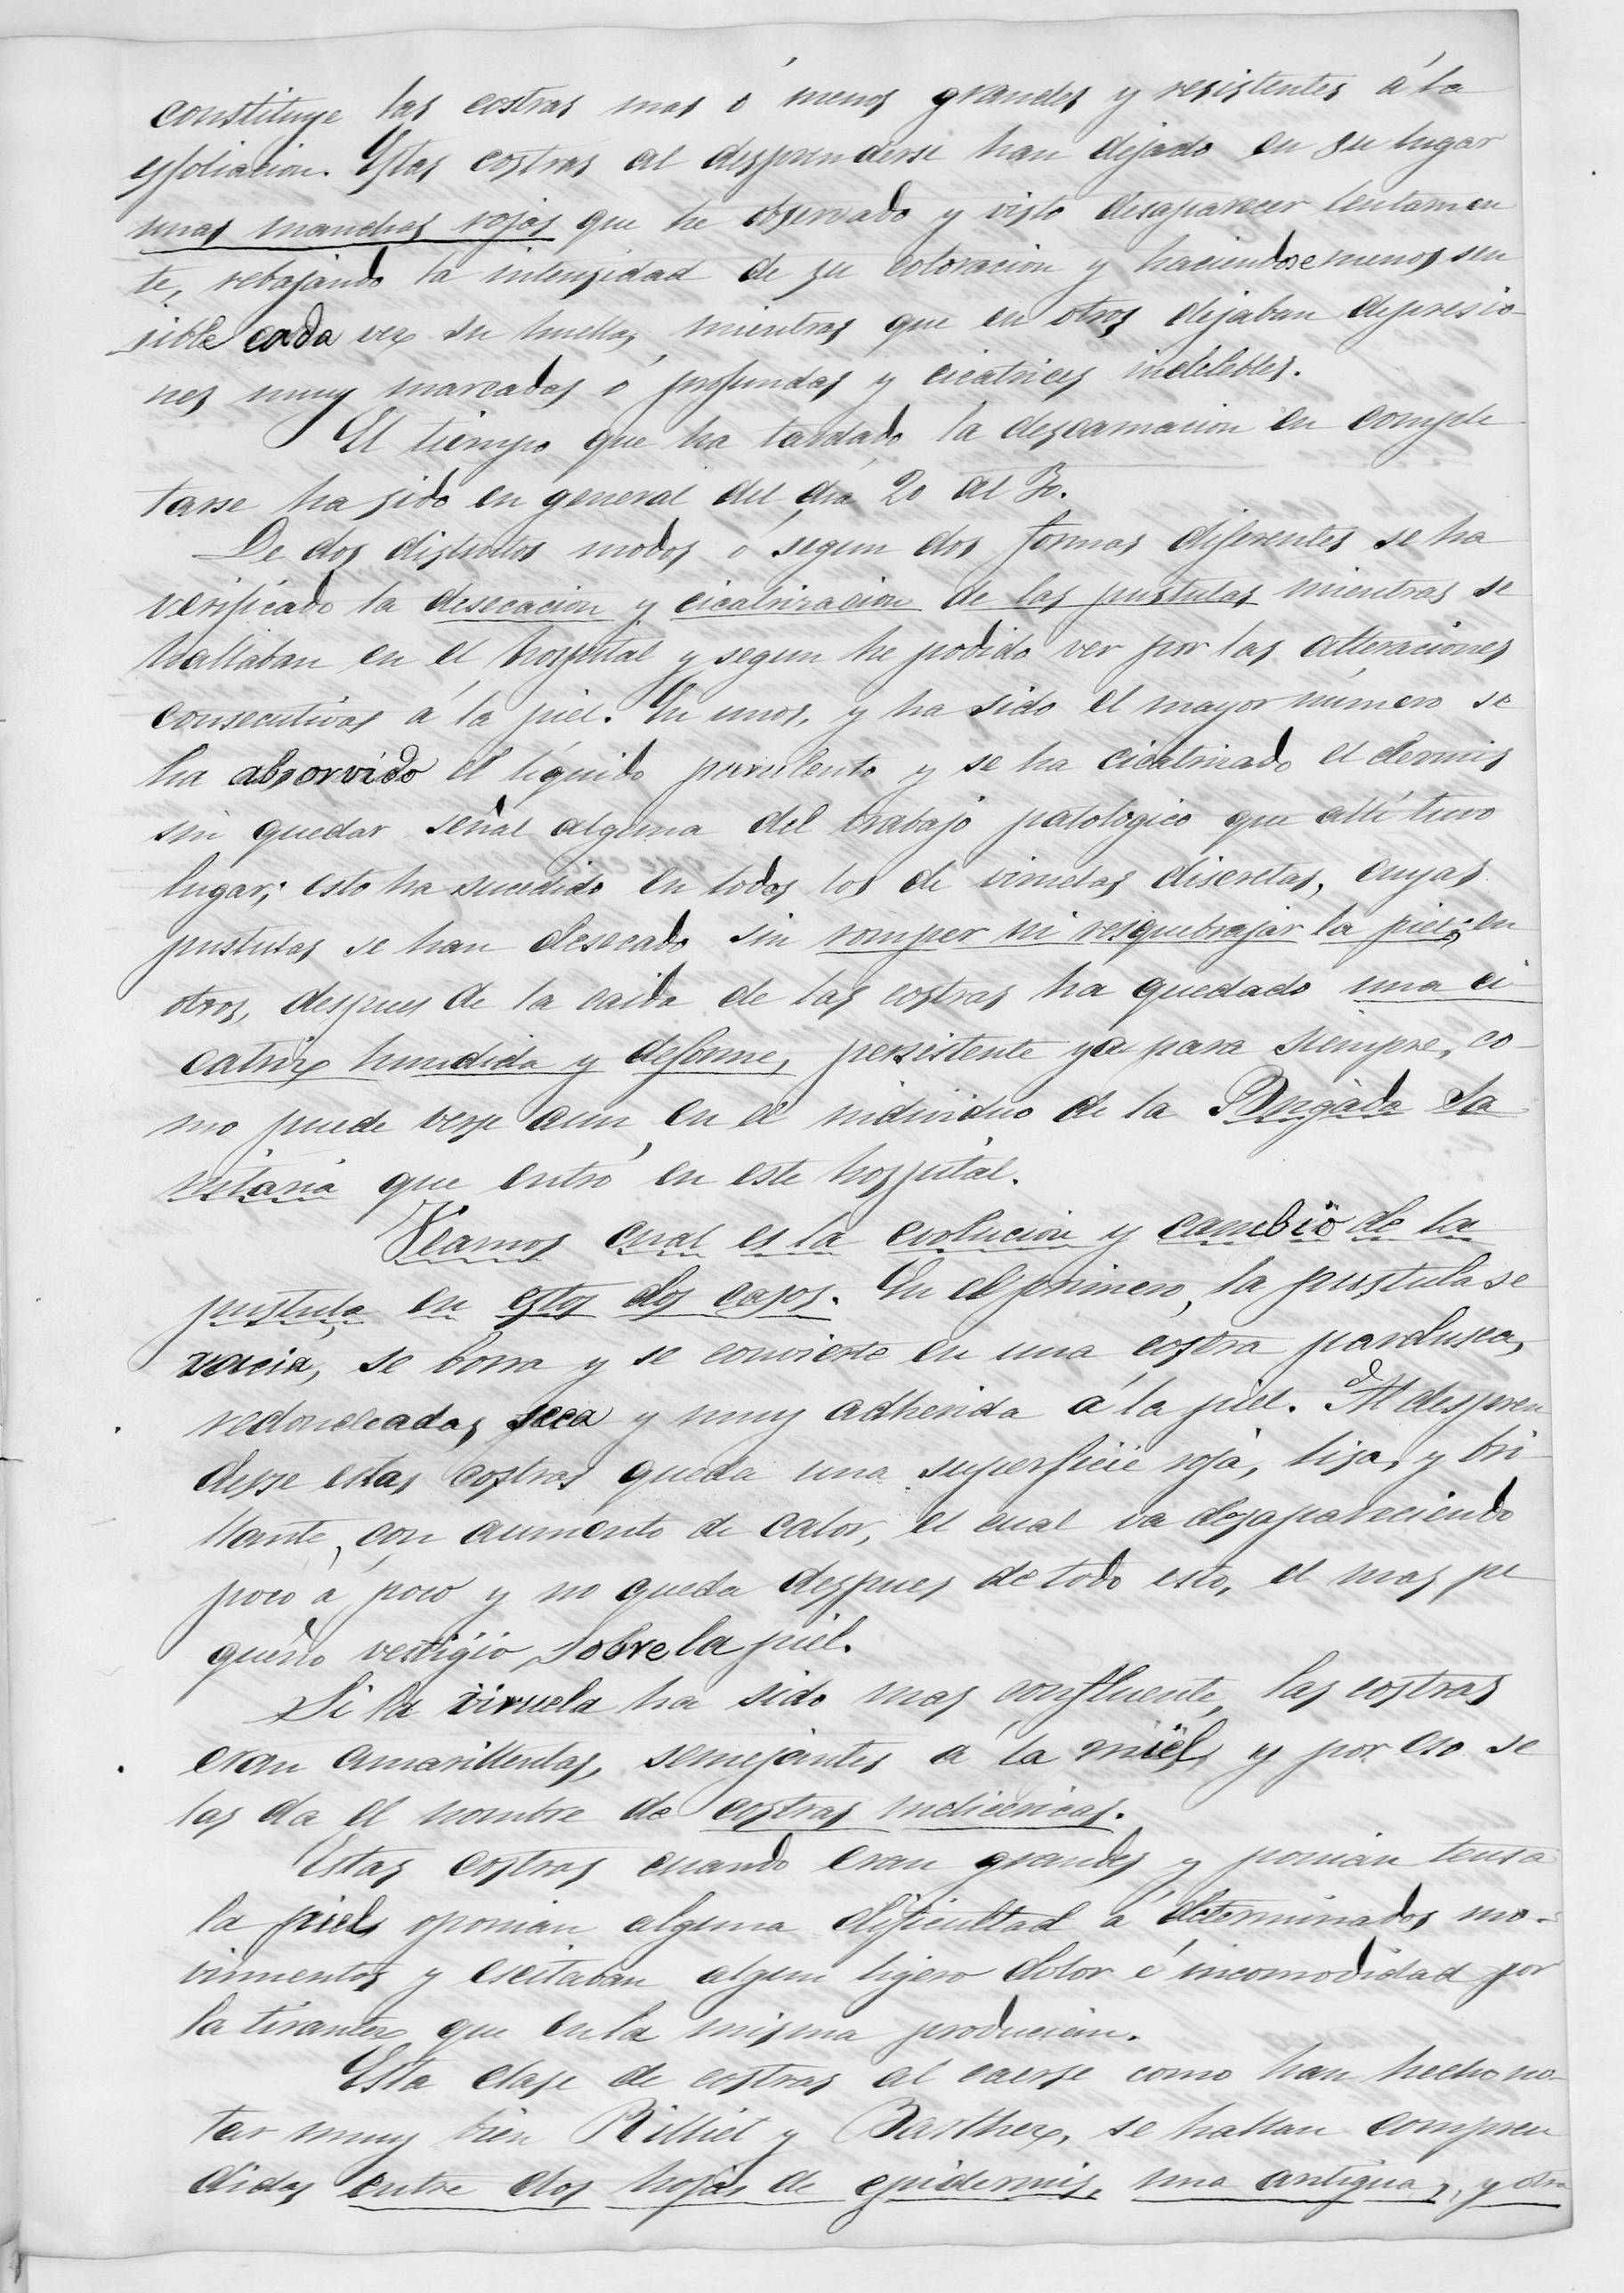 constituye las costras mas ó menos grandes y resistentes á la
esfoliacion. Estas costras al desprenderse han dejado en su lugar
unas manchas rojas que he observado y visto desaparecer lentamen
te, rebajando la intensidad de su coloracion y haciendose menos sen
sible cada vez su huella, mientras que en otros dejaban depresio-
nes muy marcadas ó profundas y cicatrices indelebles.
El tiempo que ha tardado la descamacion en comple
tarse ha sido en general del dia 20 al 30.
De dos distintos modos ó segun dos formas diferentes se ha
verificado la desecacion y cicatrizacion de las pustulas mientras se
hallaban en el hospital y segun he podido ver por las alteraciones
consecutivas á la piel. En unos, y ha sido el mayor número se
ha absorvido el líquido purulento y se ha cicatrizado el dermis
sin quedar señal alguna del trabajo patologico que allí tuvo
lugar; esto ha sucedido en todos los de viruelas discretas, cuyas
pustulas se han desecado sin romper ni resquebrajar la piel; en
otros, despues de la caida de las costras ha quedado una ci
catriz hundida y deforme, persistente ya para siempre, co-
mo puede verse aun en el individuo de la Brigada Sa
nitaria que entró en este hospital.
Veamos cual es la evolucion y cambio de la
pustula en estos dos casos. En el primero, la pustula se
vacia, se borra y se convierte en una costra pardusca,
redondeada, seca y muy adherida á la piel. Al despren
derse estas costras queda una superficie roja, lisa, y bri-
llante, con aumento de calor, el cual va desapareciendo
poco á poco y no queda despues de todo esto, el mas pe
queño vestigio sobre la piel.
Si la viruela ha sido mas confluente, las costras
eran amarillentas, semejantes á la miel, y por eso se
las da el nombre de costras melicericas.
Estas costras cuando eran grandes y ponian tensa
la piel, oponian alguna dificultad á determinados mo-
vimientos y escitaban algun ligero dolor é incomodidad por
la tirantez que en la misma producian.
Esta clase de costras al caerse como han hecho no-
tar muy bien Rilliet y Barthez, se hallan compren
didas entre dos hojas de epidermis, una antigua, y otra